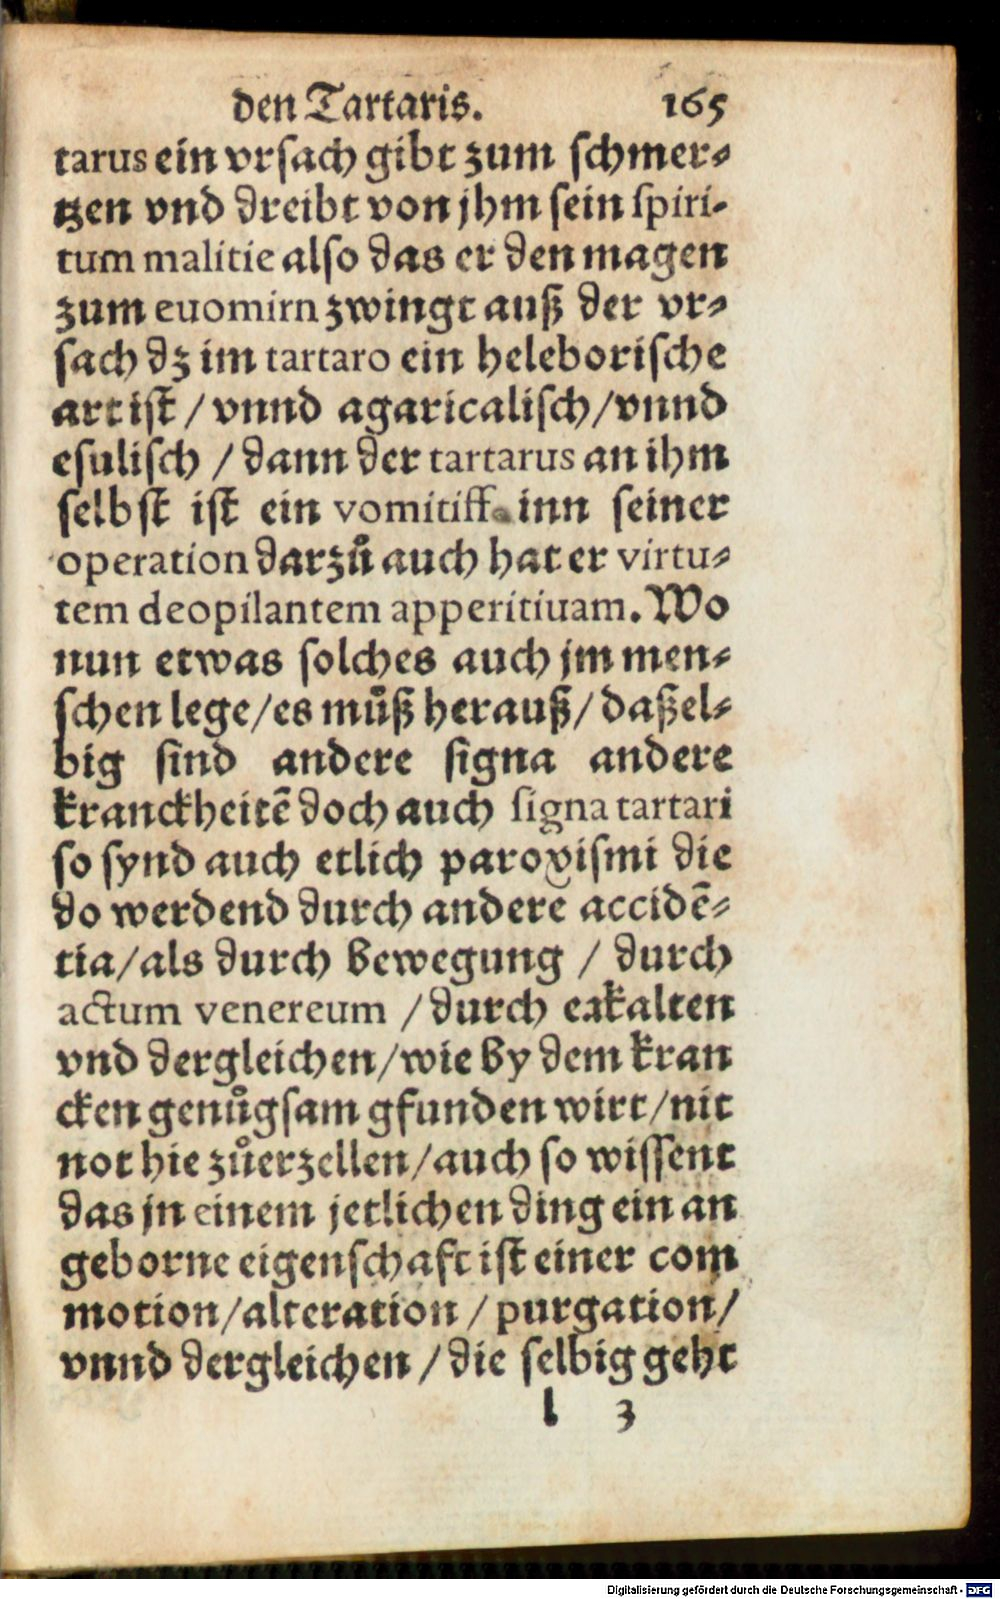 den Tartaris. 165
tarus ein vrsach gibt zum schmer⸗
tzen vnd dreibt von jhm sein spiri-
tum malitie also das er den magen
zum euomirn zwingt auß der vr⸗
sach dz im tartaro ein heleborische
art ist / vnnd agaricalisch / vnnd
esulisch / dann der tartarus an ihm
selbst ist ein vomitiff inn seiner
operation darzuͦ auch hat er virtu⸗
tem deopilantem apperitiuam. Wo
nun etwas solches auch jm men⸗
schen lege / es muͦß herauß / daßel⸗
big sind andere signa andere
kranckheitē doch auch signa tartari
so synd auch etlich paroxismi die
do werdend durch andere accidē⸗
tia / als durch bewegung / durch
actum venereum / durch erkalten
vnd dergleichen / wie by dem kran
cken genuͦgsam gfunden wirt / nit
not hie zuͦerzellen / auch so wissent
das jn einem jetlichen ding ein an
geborne eigenschaft ist einer com
motion / alteration / purgation /
vnnd dergleichen / die selbig geht
l 3
Digitalisierung gefördert durch die Deutsche Forschungsgemeinschaft - DFG